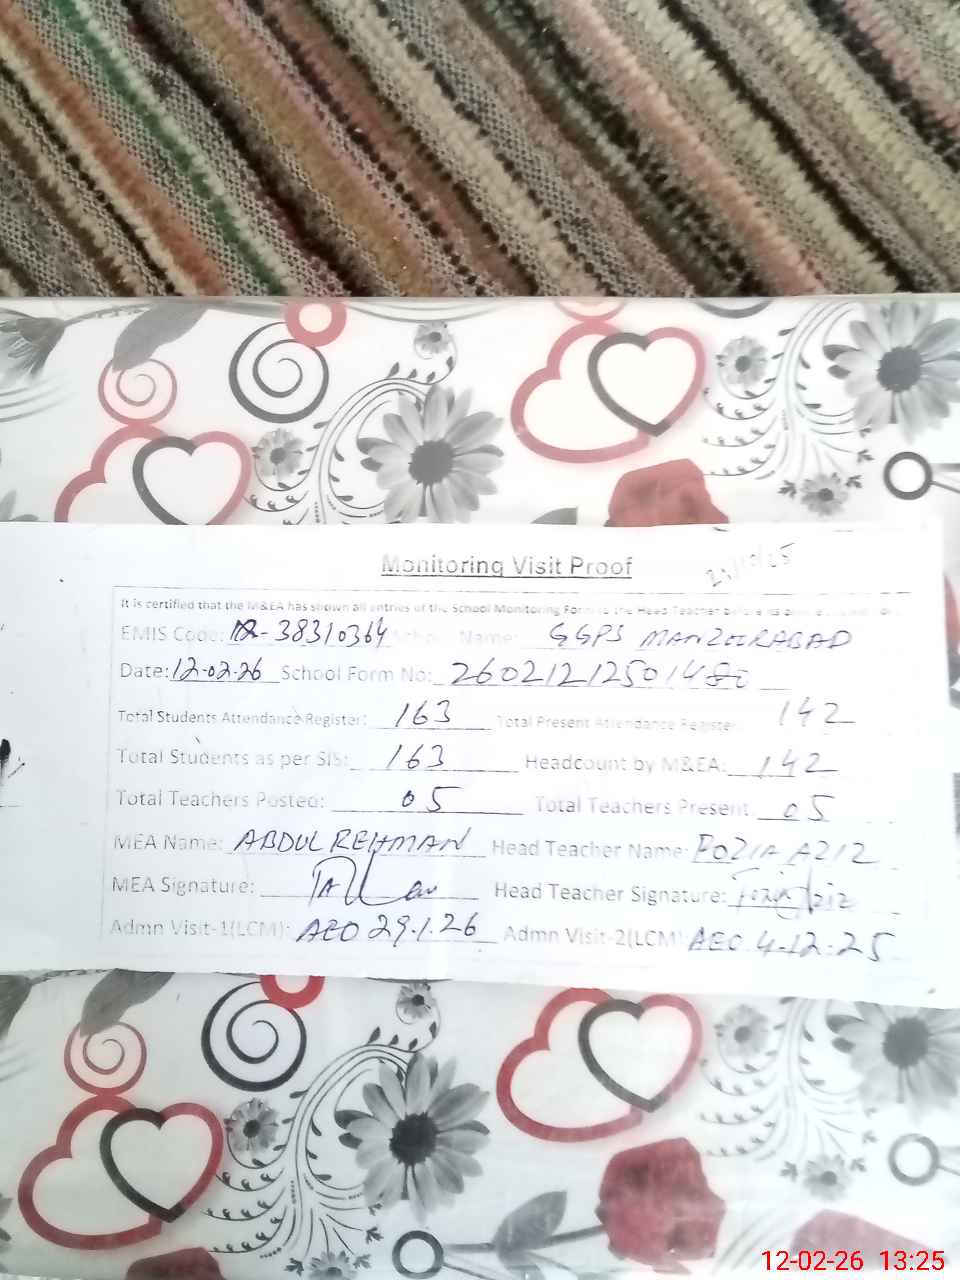 Monitoring Visit Proof
It is certified that the M&EA has shown all entries of the School Monitoring Form to the Head Teacher before its
EMIS Code: 38310364 School Name: GGPS MANZOORABAD
Date: 12-02-26 School Form No: 26021212501480
Total Students Attendance Register: 163 Total Present Attendance Register: 142
Total Students as per SIS: 163 Headcount by M&EA: 142
Total Teachers Posted: 05 Total Teachers Present 05
MEA Name: ABDUL REHMAN Head Teacher Name: FOZIA AZIZ
MEA Signature: Head Teacher Signature: Fozia Aziz
Admn Visit-1(LCM): AEO 29.1.26 Admn Visit-2(LCM) AEO 4-12-25
12-02-26 13:25